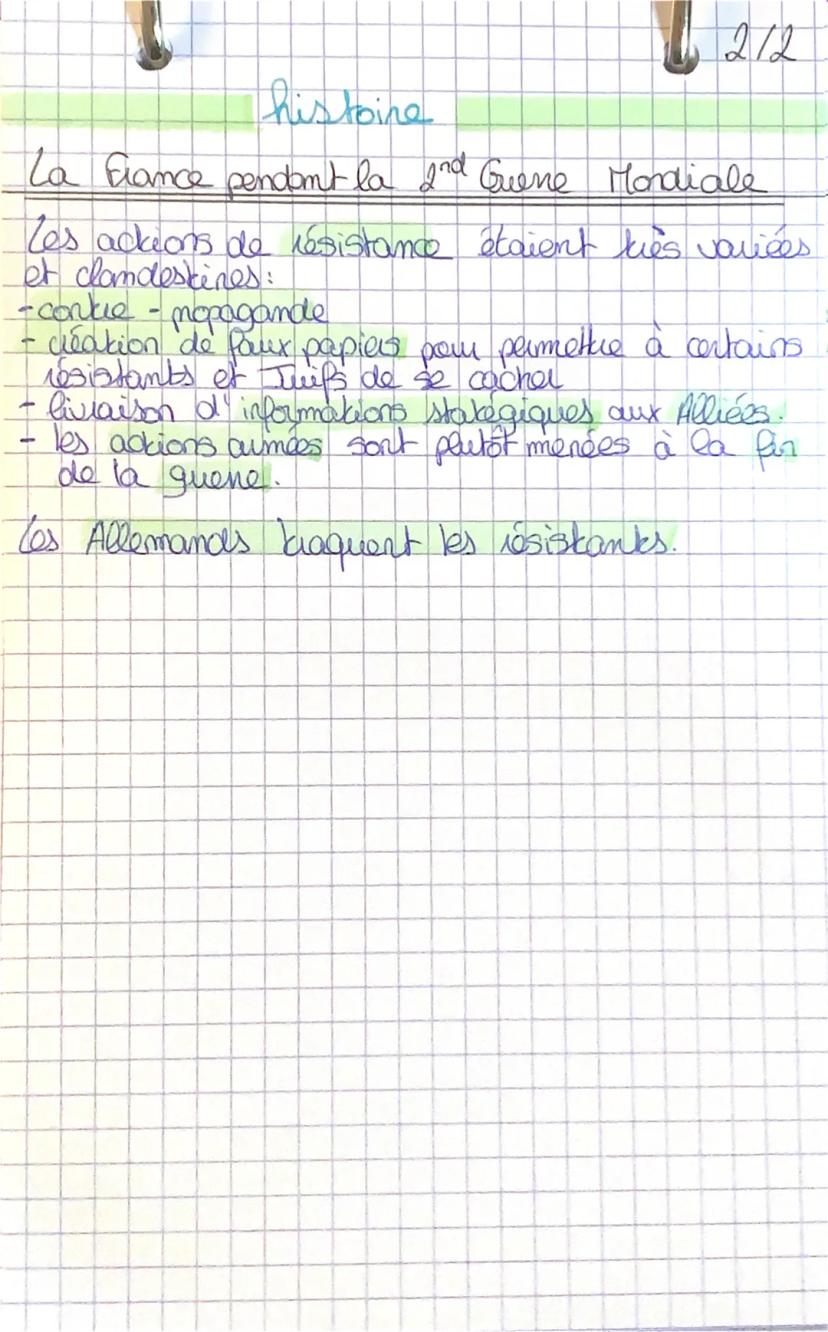 2/2
histoire
La France pendant la 2nd Guerre Mondiale
Les actions de résistance étaient très variées
et clandestines:
- contre - propagande
- création de faux papiers pour permettre à certains
résistants et Juifs de se cacher
- livraison d'informations stratégiques aux Alliées.
- les actions armées sont plutôt menées à la fin
de la guerre.
Les Allemands traquent les résistants.